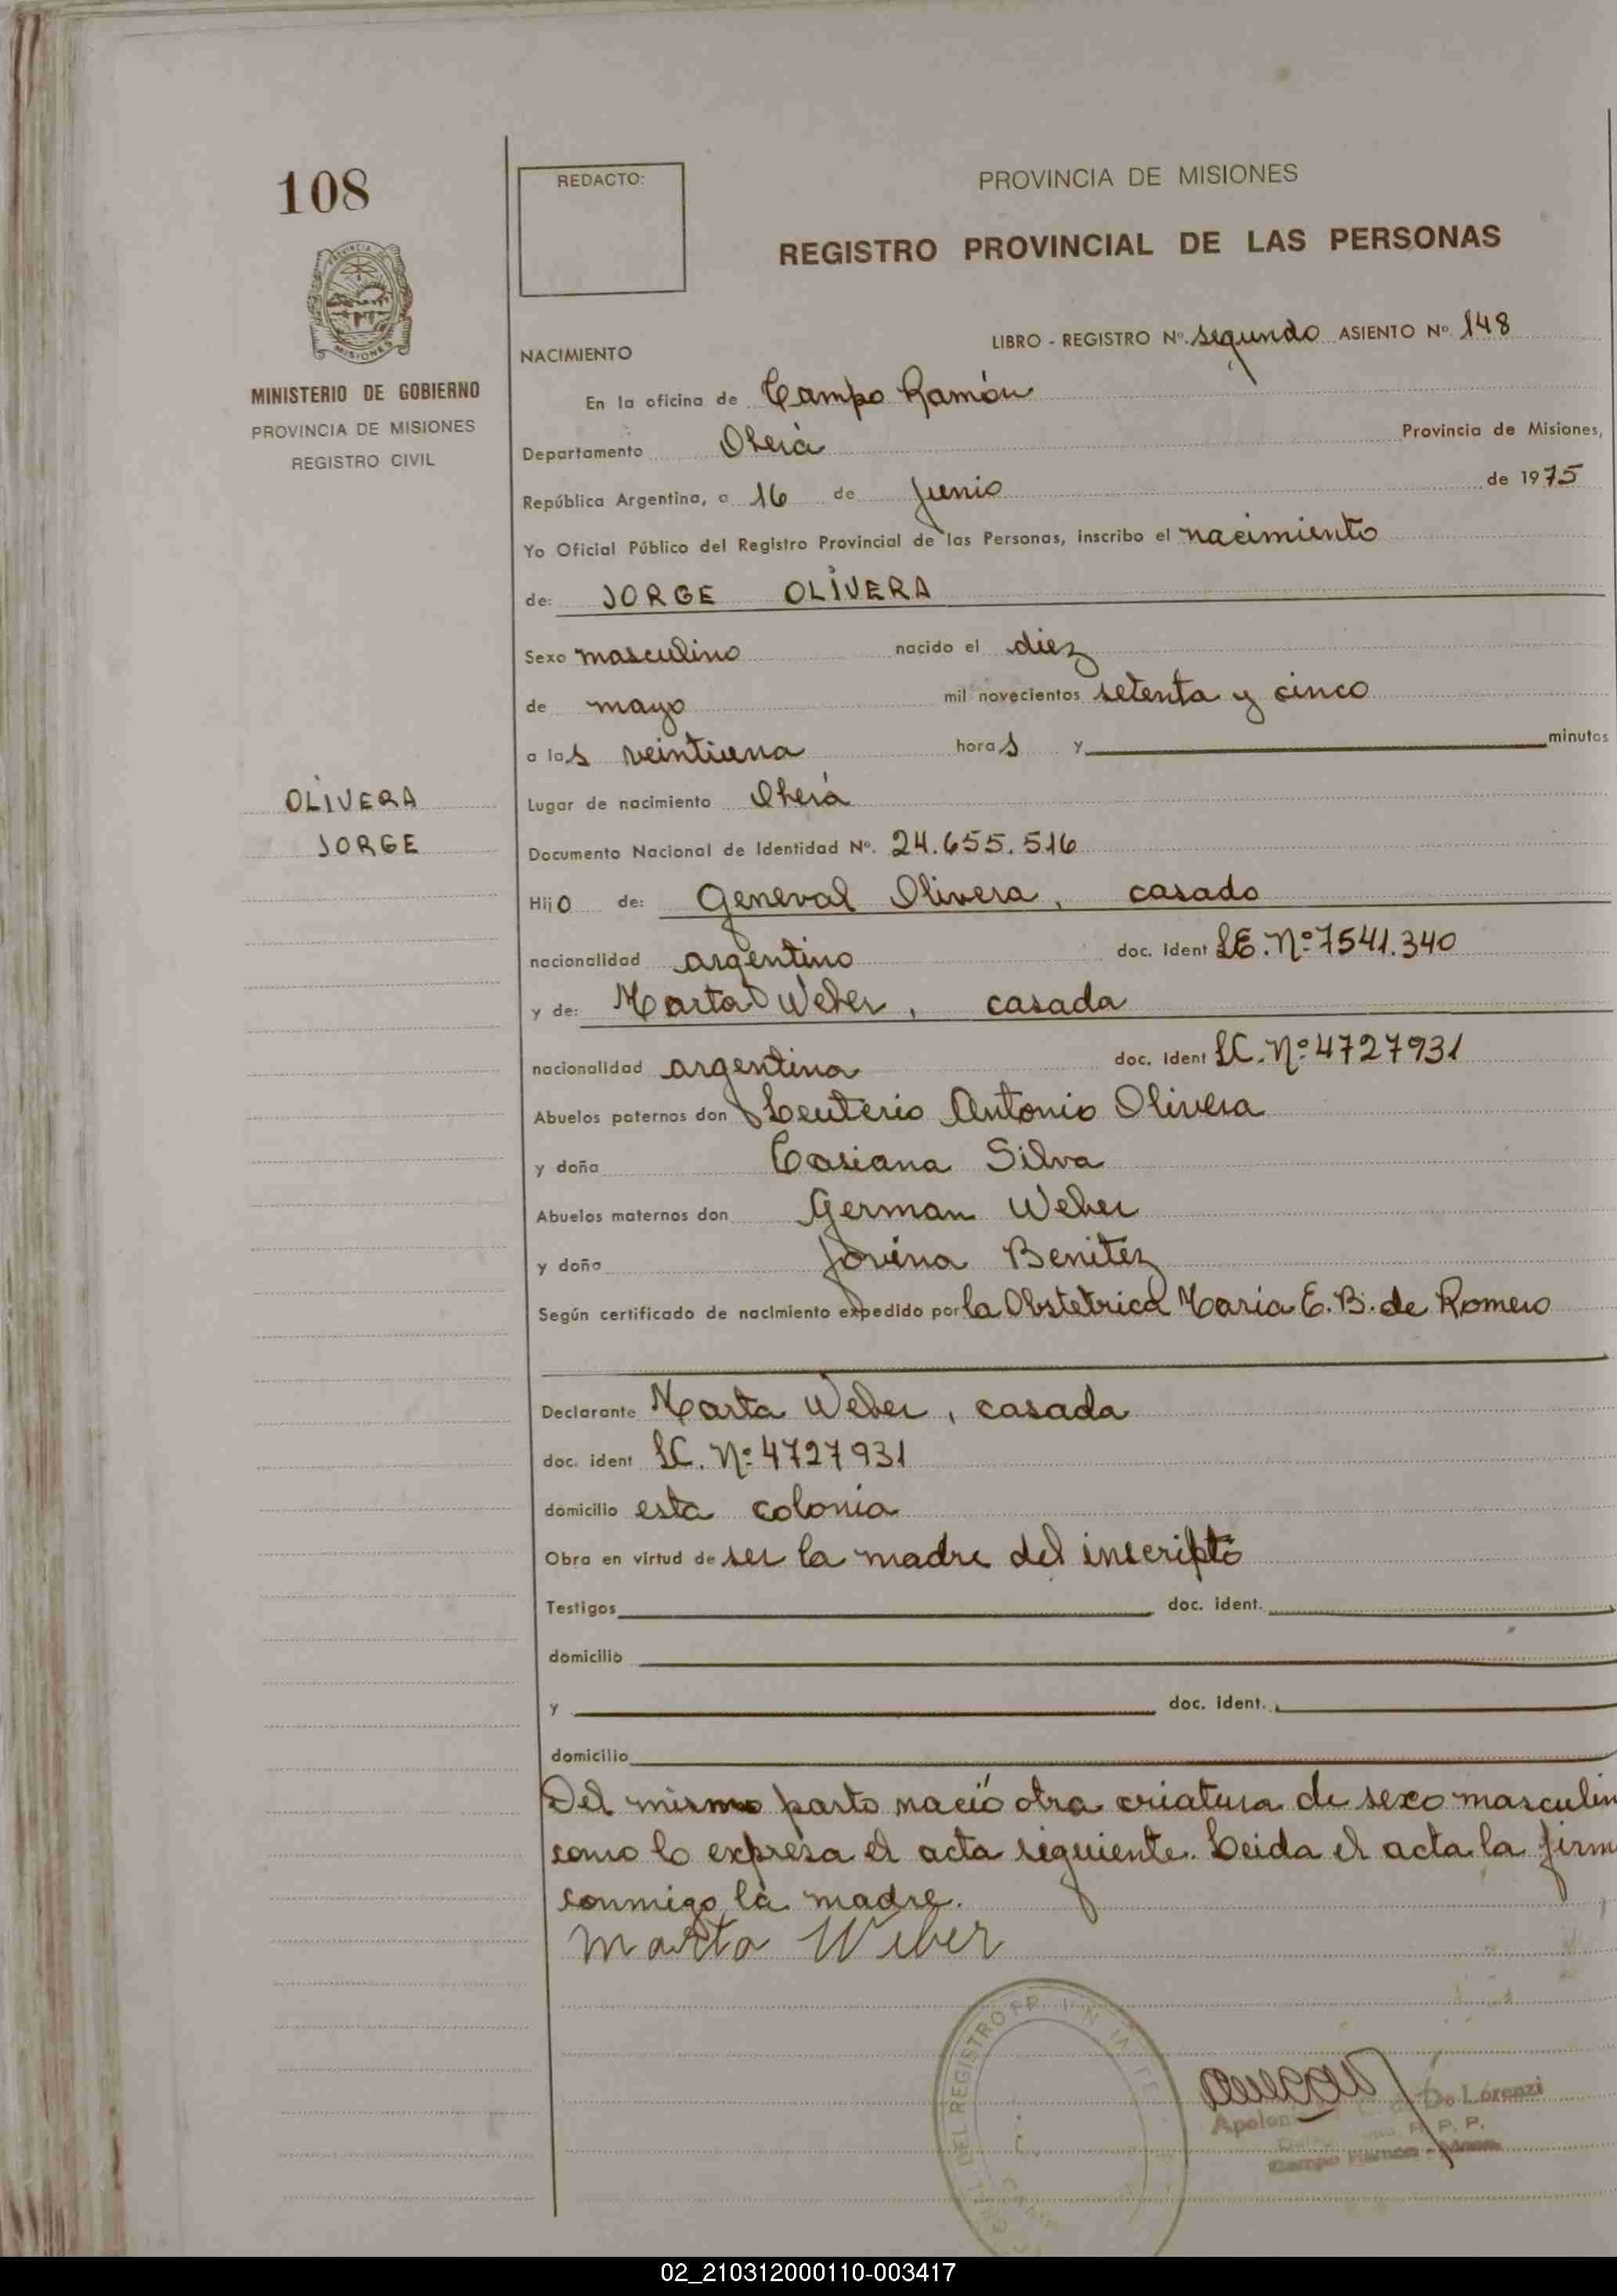 108
REDACTO:
PROVINCIA DE MISIONES
REGISTRO PROVINCIAL DE LAS PERSONAS
MINISTERIO DE GOBIERNO
PROVINCIA DE MISIONES
REGISTRO CIVIL
LIBRO - REGISTRO Nº. segundo ASIENTO Nº. 148
NACIMIENTO
En la oficina de Campo Ramón
Departamento Oberá Provincia de Misiones,
República Argentina, a 16 de Junio de 1975
Yo Oficial Público del Registro Provincial de las Personas, inscribo el nacimiento
de: JORGE OLIVERA
Sexo masculino nacido el diez
de mayo mil novecientos setenta y cinco
a las veintiuna horas y minutos
OLIVERA
JORGE
Lugar de nacimiento Oberá
Documento Nacional de Identidad Nº. 24.655.516
Hijo de: Geneval Olivera, casado
nacionalidad argentino doc. Ident L.E. Nº 7541.340
y de: Marta Weber, casada
nacionalidad argentina doc. Ident L.C. Nº 4727931
Abuelos paternos don Leuterio Antonio Olivera
y doña Casiana Silva
Abuelos maternos don German Weber
y doña Jovina Benitez
Según certificado de nacimiento expedido por la Obstetrica Maria E. B. de Romero
Declarante Marta Weber, casada
doc. ident L.C. Nº 4727931
domicilio esta colonia
Obra en virtud de ser la madre del inscripto
Testigos doc. ident.
domicilio
y doc. ident.
domicilio
Del mismo parto nació otra criatura de sexo masculin
como lo expresa el acta siguiente. Leida el acta la firm
conmigo la madre.
Marta Weber
DEL REGISTRO
Lorenzi
R. P. P.
Campo Ramón
02_210312000110-003417